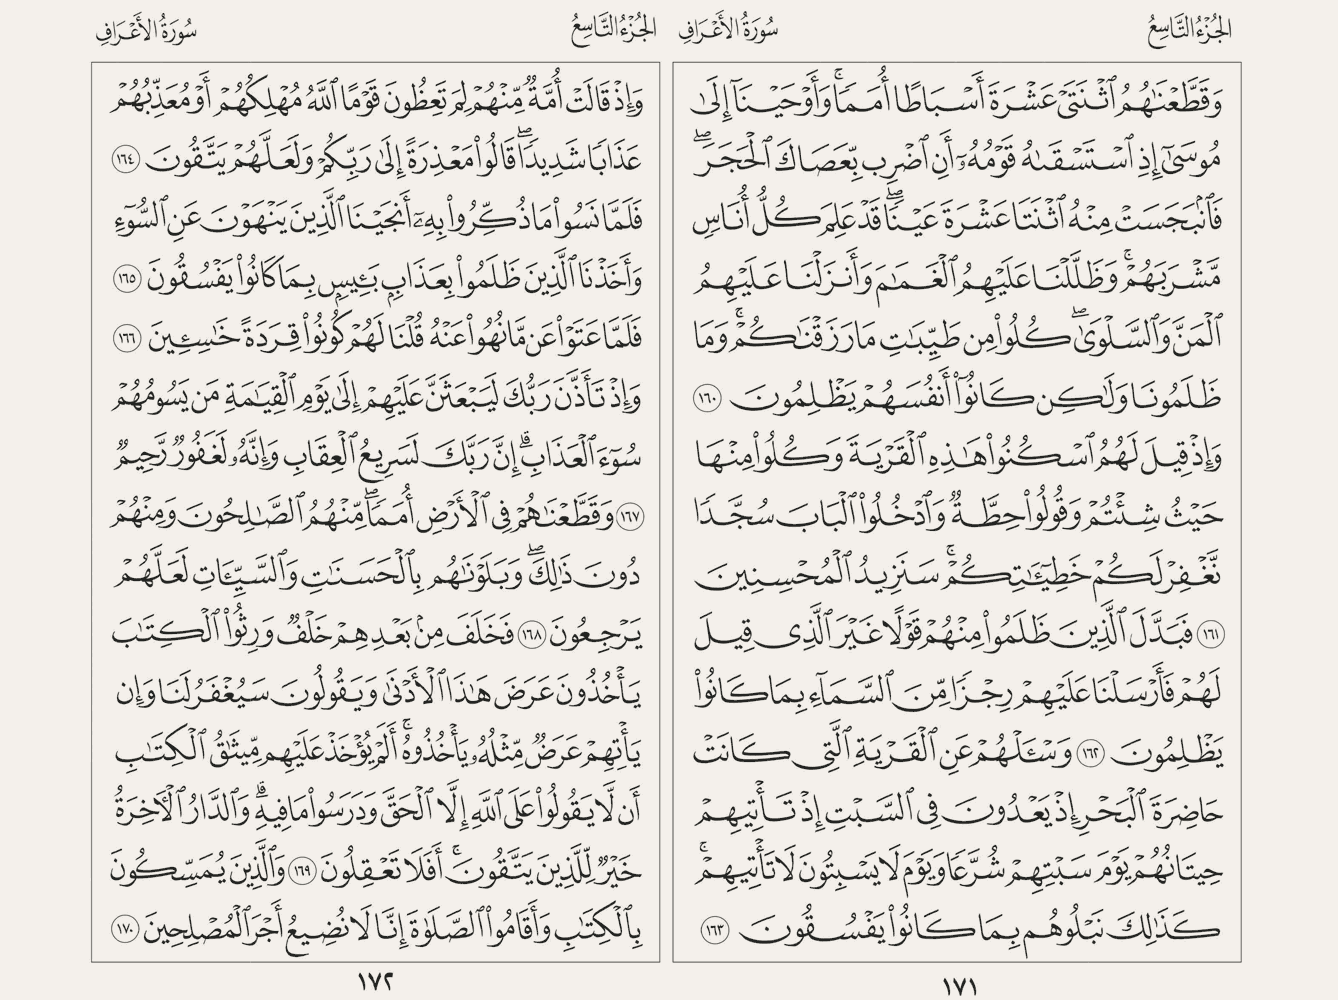 الجُزْءُ التَّاسِعُ
سُورَةُ الأَعْرَافِ
وَقَطَّعْنَٰهُمُ ٱثْنَتَىْ عَشْرَةَ أَسْبَاطًا أُمَمًاۚ وَأَوْحَيْنَآ إِلَىٰ
مُوسَىٰٓ إِذِ ٱسْتَسْقَىٰهُ قَوْمُهُۥٓ أَنِ ٱضْرِب بِّعَصَاكَ ٱلْحَجَرَۖ
فَٱنۢبَجَسَتْ مِنْهُ ٱثْنَتَا عَشْرَةَ عَيْنًاۖ قَدْ عَلِمَ كُلُّ أُنَاسٍ
مَّشْرَبَهُمْۚ وَظَلَّلْنَا عَلَيْهِمُ ٱلْغَمَٰمَ وَأَنزَلْنَا عَلَيْهِمُ
ٱلْمَنَّ وَٱلسَّلْوَىٰۖ كُلُوا۟ مِن طَيِّبَٰتِ مَا رَزَقْنَٰكُمْۚ وَمَا
ظَلَمُونَا وَلَٰكِن كَانُوٓا۟ أَنفُسَهُمْ يَظْلِمُونَ ١٦٠
وَإِذْ قِيلَ لَهُمُ ٱسْكُنُوا۟ هَٰذِهِ ٱلْقَرْيَةَ وَكُلُوا۟ مِنْهَا
حَيْثُ شِئْتُمْ وَقُولُوا۟ حِطَّةٌ وَٱدْخُلُوا۟ ٱلْبَابَ سُجَّدًا
نَّغْفِرْ لَكُمْ خَطِيٓـَٰٔتِكُمْۚ سَنَزِيدُ ٱلْمُحْسِنِينَ
١٦١ فَبَدَّلَ ٱلَّذِينَ ظَلَمُوا۟ مِنْهُمْ قَوْلًا غَيْرَ ٱلَّذِى قِيلَ
لَهُمْ فَأَرْسَلْنَا عَلَيْهِمْ رِجْزًا مِّنَ ٱلسَّمَآءِ بِمَا كَانُوا۟
يَظْلِمُونَ ١٦٢ وَسْـَٔلْهُمْ عَنِ ٱلْقَرْيَةِ ٱلَّتِى كَانَتْ
حَاضِرَةَ ٱلْبَحْرِ إِذْ يَعْدُونَ فِى ٱلسَّبْتِ إِذْ تَأْتِيهِمْ
حِيتَانُهُمْ يَوْمَ سَبْتِهِمْ شُرَّعًا وَيَوْمَ لَا يَسْبِتُونَ لَا تَأْتِيهِمْۚ
كَذَٰلِكَ نَبْلُوهُم بِمَا كَانُوا۟ يَفْسُقُونَ ١٦٣
١٧١
الجُزْءُ التَّاسِعُ
سُورَةُ الأَعْرَافِ
وَإِذْ قَالَتْ أُمَّةٌ مِّنْهُمْ لِمَ تَعِظُونَ قَوْمًا ٱللَّهُ مُهْلِكُهُمْ أَوْ مُعَذِّبُهُمْ
عَذَابًا شَدِيدًاۖ قَالُوا۟ مَعْذِرَةً إِلَىٰ رَبِّكُمْ وَلَعَلَّهُمْ يَتَّقُونَ ١٦٤
فَلَمَّا نَسُوا۟ مَا ذُكِّرُوا۟ بِهِۦٓ أَنجَيْنَا ٱلَّذِينَ يَنْهَوْنَ عَنِ ٱلسُّوٓءِ
وَأَخَذْنَا ٱلَّذِينَ ظَلَمُوا۟ بِعَذَابٍۭ بَـِٔيسٍۭ بِمَا كَانُوا۟ يَفْسُقُونَ ١٦٥
فَلَمَّا عَتَوْا۟ عَن مَّا نُهُوا۟ عَنْهُ قُلْنَا لَهُمْ كُونُوا۟ قِرَدَةً خَٰسِـِٔينَ ١٦٦
وَإِذْ تَأَذَّنَ رَبُّكَ لَيَبْعَثَنَّ عَلَيْهِمْ إِلَىٰ يَوْمِ ٱلْقِيَٰمَةِ مَن يَسُومُهُمْ
سُوٓءَ ٱلْعَذَابِۗ إِنَّ رَبَّكَ لَسَرِيعُ ٱلْعِقَابِ وَإِنَّهُۥ لَغَفُورٌ رَّحِيمٌ
١٦٧ وَقَطَّعْنَٰهُمْ فِى ٱلْأَرْضِ أُمَمًاۖ مِّنْهُمُ ٱلصَّٰلِحُونَ وَمِنْهُمْ
دُونَ ذَٰلِكَۖ وَبَلَوْنَٰهُم بِٱلْحَسَنَٰتِ وَٱلسَّيِّـَٔاتِ لَعَلَّهُمْ
يَرْجِعُونَ ١٦٨ فَخَلَفَ مِنۢ بَعْدِهِمْ خَلْفٌ وَرِثُوا۟ ٱلْكِتَٰبَ
يَأْخُذُونَ عَرَضَ هَٰذَا ٱلْأَدْنَىٰ وَيَقُولُونَ سَيُغْفَرُ لَنَا وَإِن
يَأْتِهِمْ عَرَضٌ مِّثْلُهُۥ يَأْخُذُوهُۚ أَلَمْ يُؤْخَذْ عَلَيْهِم مِّيثَٰقُ ٱلْكِتَٰبِ
أَن لَّا يَقُولُوا۟ عَلَى ٱللَّهِ إِلَّا ٱلْحَقَّ وَدَرَسُوا۟ مَا فِيهِۗ وَٱلدَّارُ ٱلْـَٔاخِرَةُ
خَيْرٌ لِّلَّذِينَ يَتَّقُونَۚ أَفَلَا تَعْقِلُونَ ١٦٩ وَٱلَّذِينَ يُمَسِّكُونَ
بِٱلْكِتَٰبِ وَأَقَامُوا۟ ٱلصَّلَوٰةَ إِنَّا لَا نُضِيعُ أَجْرَ ٱلْمُصْلِحِينَ ١٧٠
١٧٢